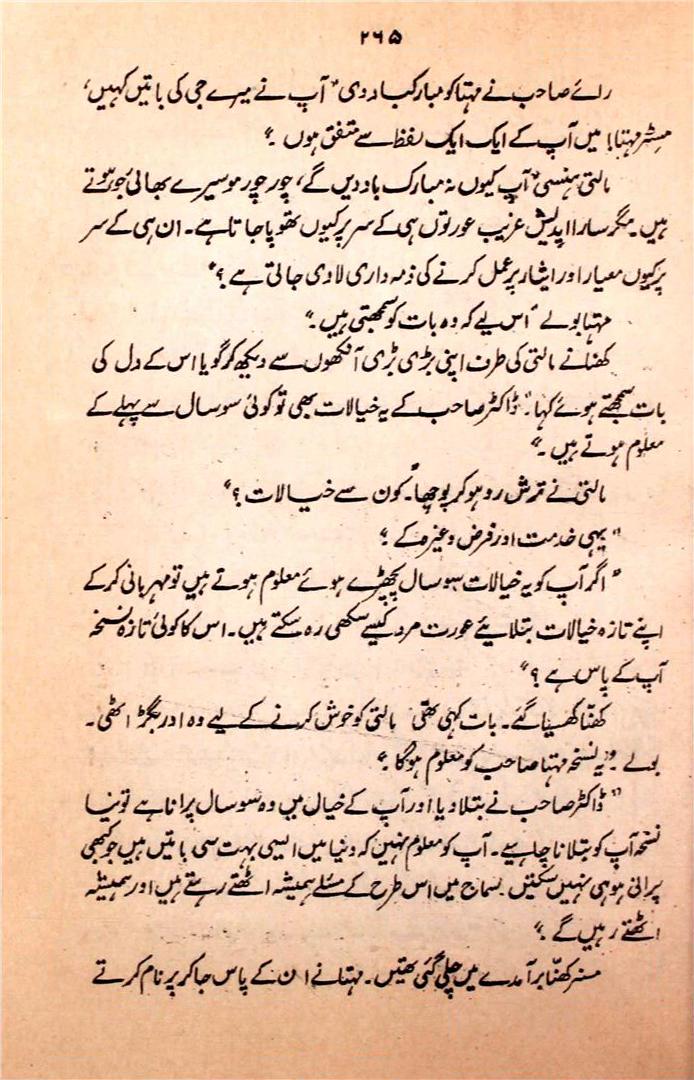 ۲۶۵
رائے صاحب نے مہتا کو مبارکباد دی "آپ نے میرے جی کی باتیں کہیں،
مسٹر مہتا! میں آپ کے ایک ایک لفظ سے متفق ہوں۔"
مالتی ہنسی "آپ کیوں نہ مبارک باد دیں گے، چور چور موسیرے بھائی جو ہوتے
ہیں۔ مگر سارا اپدیش غریب عورتوں ہی کے سر پر کیوں تھوپا جاتا ہے۔ ان ہی کے سر
پر کیوں معیار اور ایثار پر عمل کرنے کی ذمہ داری لادی جاتی ہے؟"
مہتا بولے "اس لیے کہ وہ بات کو سمجھتی ہیں۔"
کھنا نے مالتی کی طرف اپنی بڑی بڑی آنکھوں سے دیکھ کر گویا اس کے دل کی
بات سمجھتے ہوئے کہا۔ "ڈاکٹر صاحب کے یہ خیالات بھی تو کوئی سو سال سے پہلے کے
معلوم ہوتے ہیں۔"
مالتی نے ترش رو ہو کر پوچھا۔ "کون سے خیالات؟"
"یہی خدمت اور فرض وغیرہ کے؛
"اگر آپ کو یہ خیالات سو سال پچھڑے ہوئے معلوم ہوتے ہیں تو مہربانی کر کے
اپنے تازہ خیالات بتلایئے عورت مرد کیسے سکھی رہ سکتے ہیں۔ اس کا کوئی تازہ نسخہ
آپ کے پاس ہے؟"
کھنّا کھسیا گئے۔ بات کہی تھی مالتی کو خوش کرنے کے لیے وہ اور بگڑ اٹھی۔
بولے۔ "یہ نسخہ مہتا صاحب کو معلوم ہوگا۔"
"ڈاکٹر صاحب نے بتلا دیا اور آپ کے خیال میں وہ سو سال پرانا ہے تو نیا
نسخہ آپ کو بتلانا چاہیے۔ آپ کو معلوم نہیں کہ دنیا میں ایسی بہت سی باتیں ہیں جو کبھی
پرانی ہو ہی نہیں سکتیں۔ سماج میں اس طرح کے مسئلے ہمیشہ اٹھتے رہتے ہیں اور ہمیشہ
اٹھتے رہیں گے۔"
مسز کھنّا برآمدے میں چلی گئی تھیں۔ مہتا نے ان کے پاس جا کر پرنام کرتے